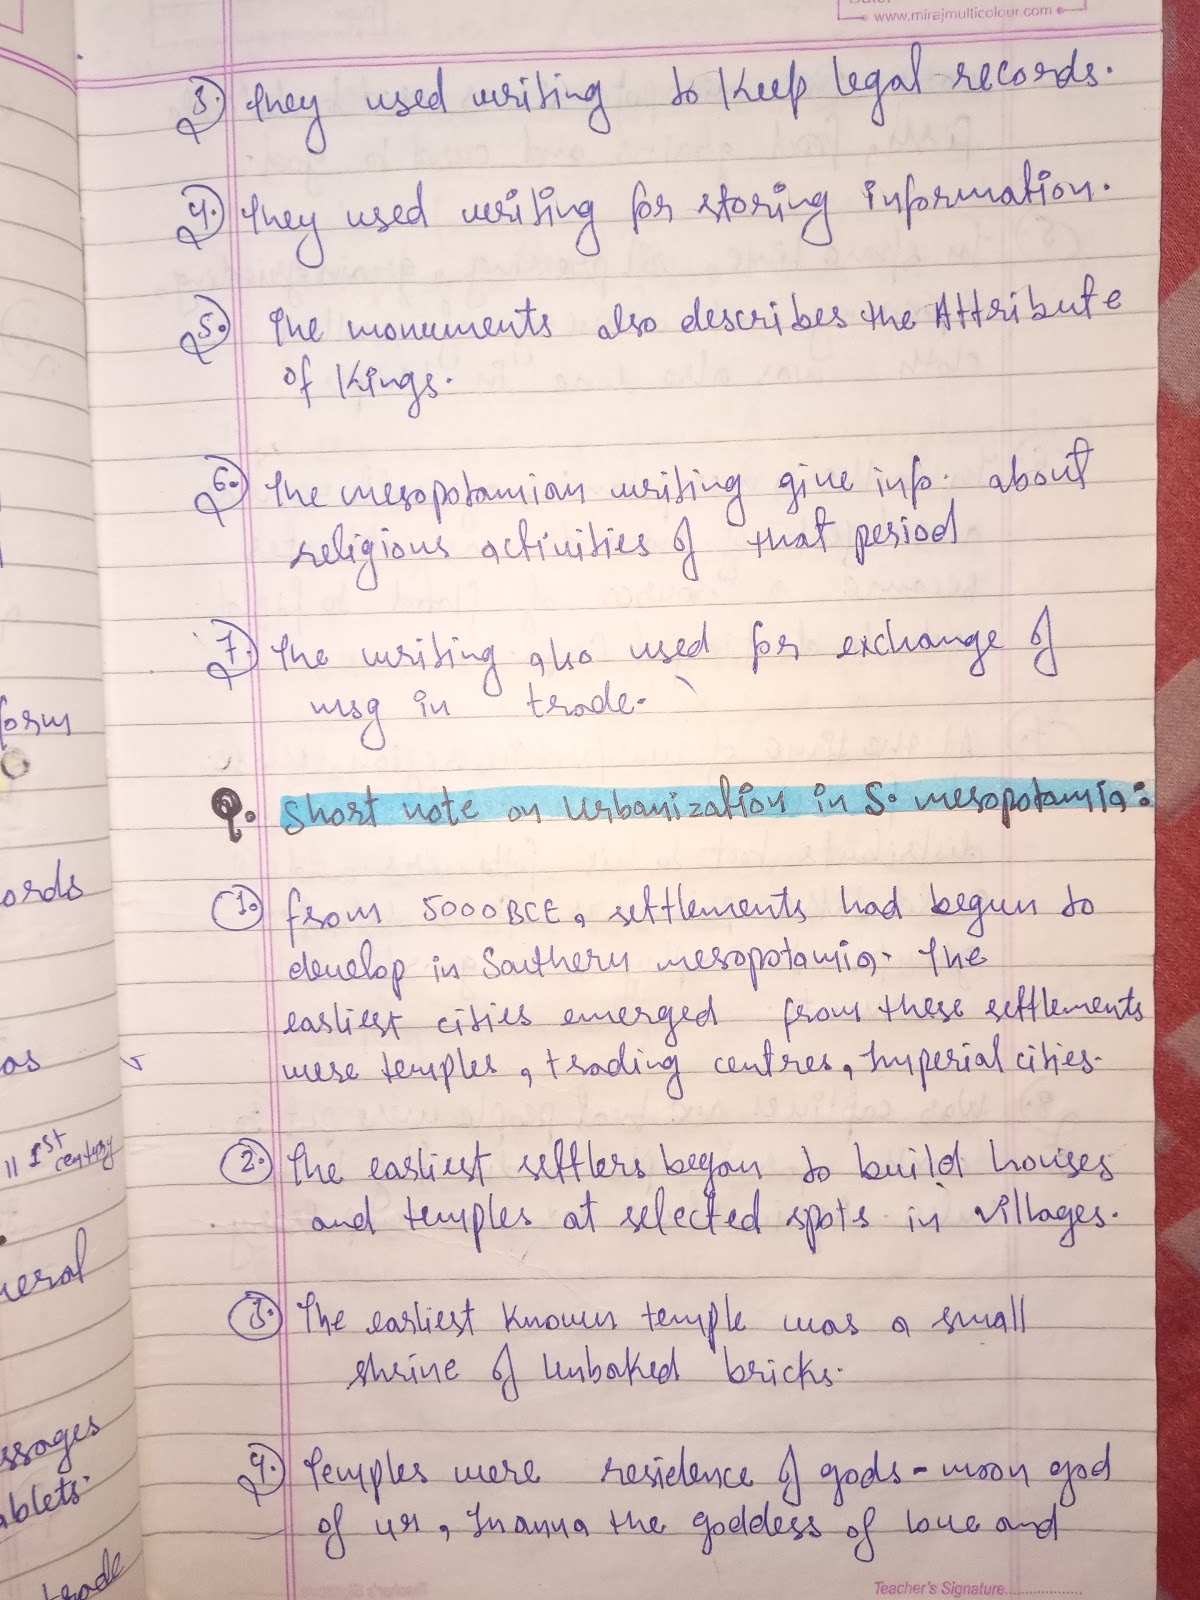 www.mirajmulticolour.com
3. They used writing to keep legal records.
4. They used writing for storing information.
5. The monuments also describes the Attribute
of Kings.
6. The mesopotamian writing give info. about
religious activities of that period
7. The writing also used for exchange of
msg in trade.
Q. Short note on Urbanization in S. mesopotamia:
1. from 5000BCE, settlements had begun to
develop in Southern mesopotamia. The
earliest cities emerged from these settlements
were temples, trading centres, Imperial cities.
2. The earliest settlers began to build houses
and temples at selected spots in villages.
3. The earliest known temple was a small
shrine of unbaked bricks.
4. Temples were residence of gods - moon god
of ur, Inanna the goddess of love and
Teacher's Signature
form
ords
as
11 1st century
neral
ssages
ablets.
trade